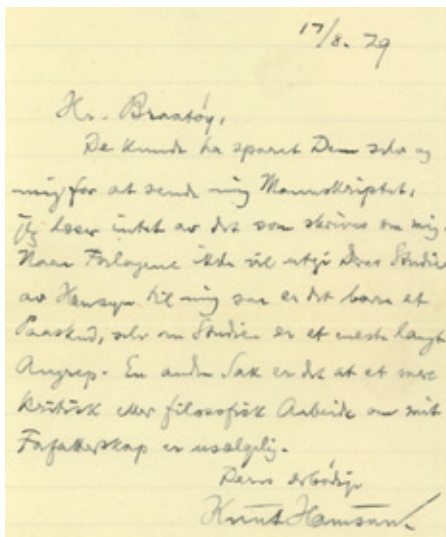 17/8. 29
Hr. Braatøy,
De kunde ha sparet Dem selv og
mig for at sende mig Manuskriptet,
jeg læser intet av det som skrives om mig.
Naar Forlagene ikke vil utgi Deres Studie
av Hensyn til mig saa er det bare et
Paaskud, selv om Studien er et eneste langt
Angrep. En anden Sak er det at et mere
kritisk eller filosofisk Arbeide om mit
Forfatterskap er usælgelig.
Deres ærbødige
Knut Hamsun.